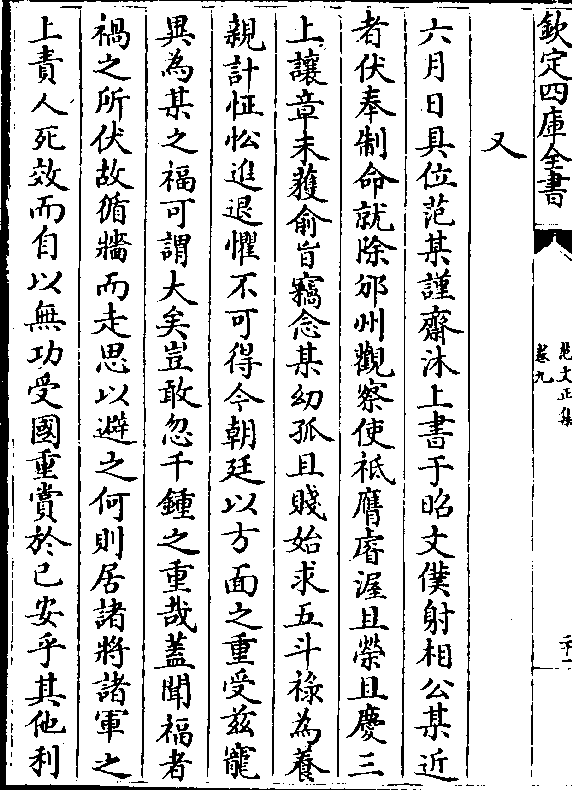 欽定四庫全書
范文正集
卷九
又
六月日具位范某謹齋沐上書于昭文僕射相公某近
者伏奉制命就除邠州觀察使祗膺睿渥且榮且慶三
上讓章未獲俞旨竊念某幼孤且賤始求五斗祿為養
親計怔忪進退懼不可得今朝廷以方面之重受茲寵
異為某之福可謂大矣豈敢忽千鍾之重哉蓋聞福者
禍之所伏故循牆而走思以避之何則居諸將諸軍之
上責人死效而自以無功受國重賞於已安乎其他利